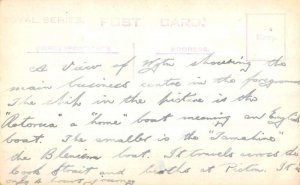 ROYAL SERIES. POST CARD.
CORRESPONDENCE. ADDRESS.
A View of Wgtn showing the
main business centre in the foreground
The ship in the picture is the
"Rotorua" a "home" boat meaning an English
boat. The smaller is the "Tamahine"
the Blenheim boat. It travels across the
Cook Strait and berths at Picton. It
only 4 hours